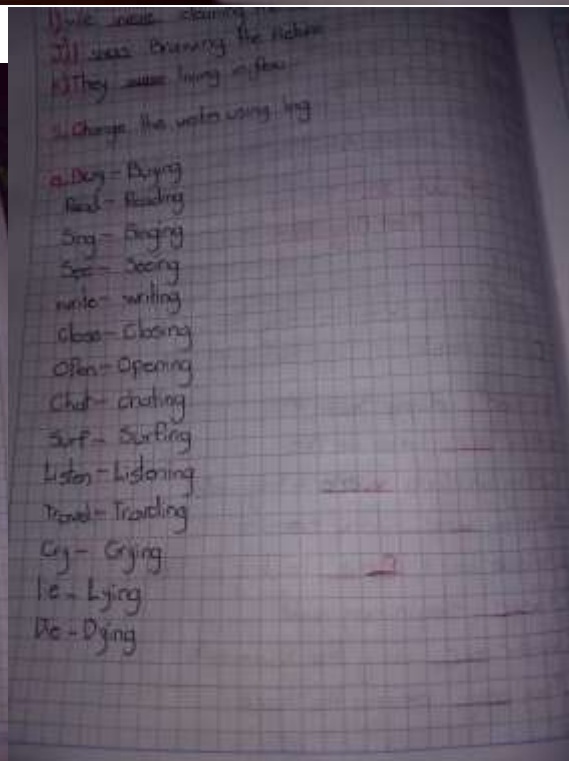 I) We were cleaning the
J) I was Brawing the Picture
K) They were living in
2. Change the verbs using ing
a. Buy - Buying
Read - Reading
Sing - Singing
See - Seeing
write - writing
Close - Closing
Open - Opening
Chat - chating
Surf - Surfing
Listen - Listening
Travel - Traveling
Cry - Crying
lie - Lying
Die - Dying